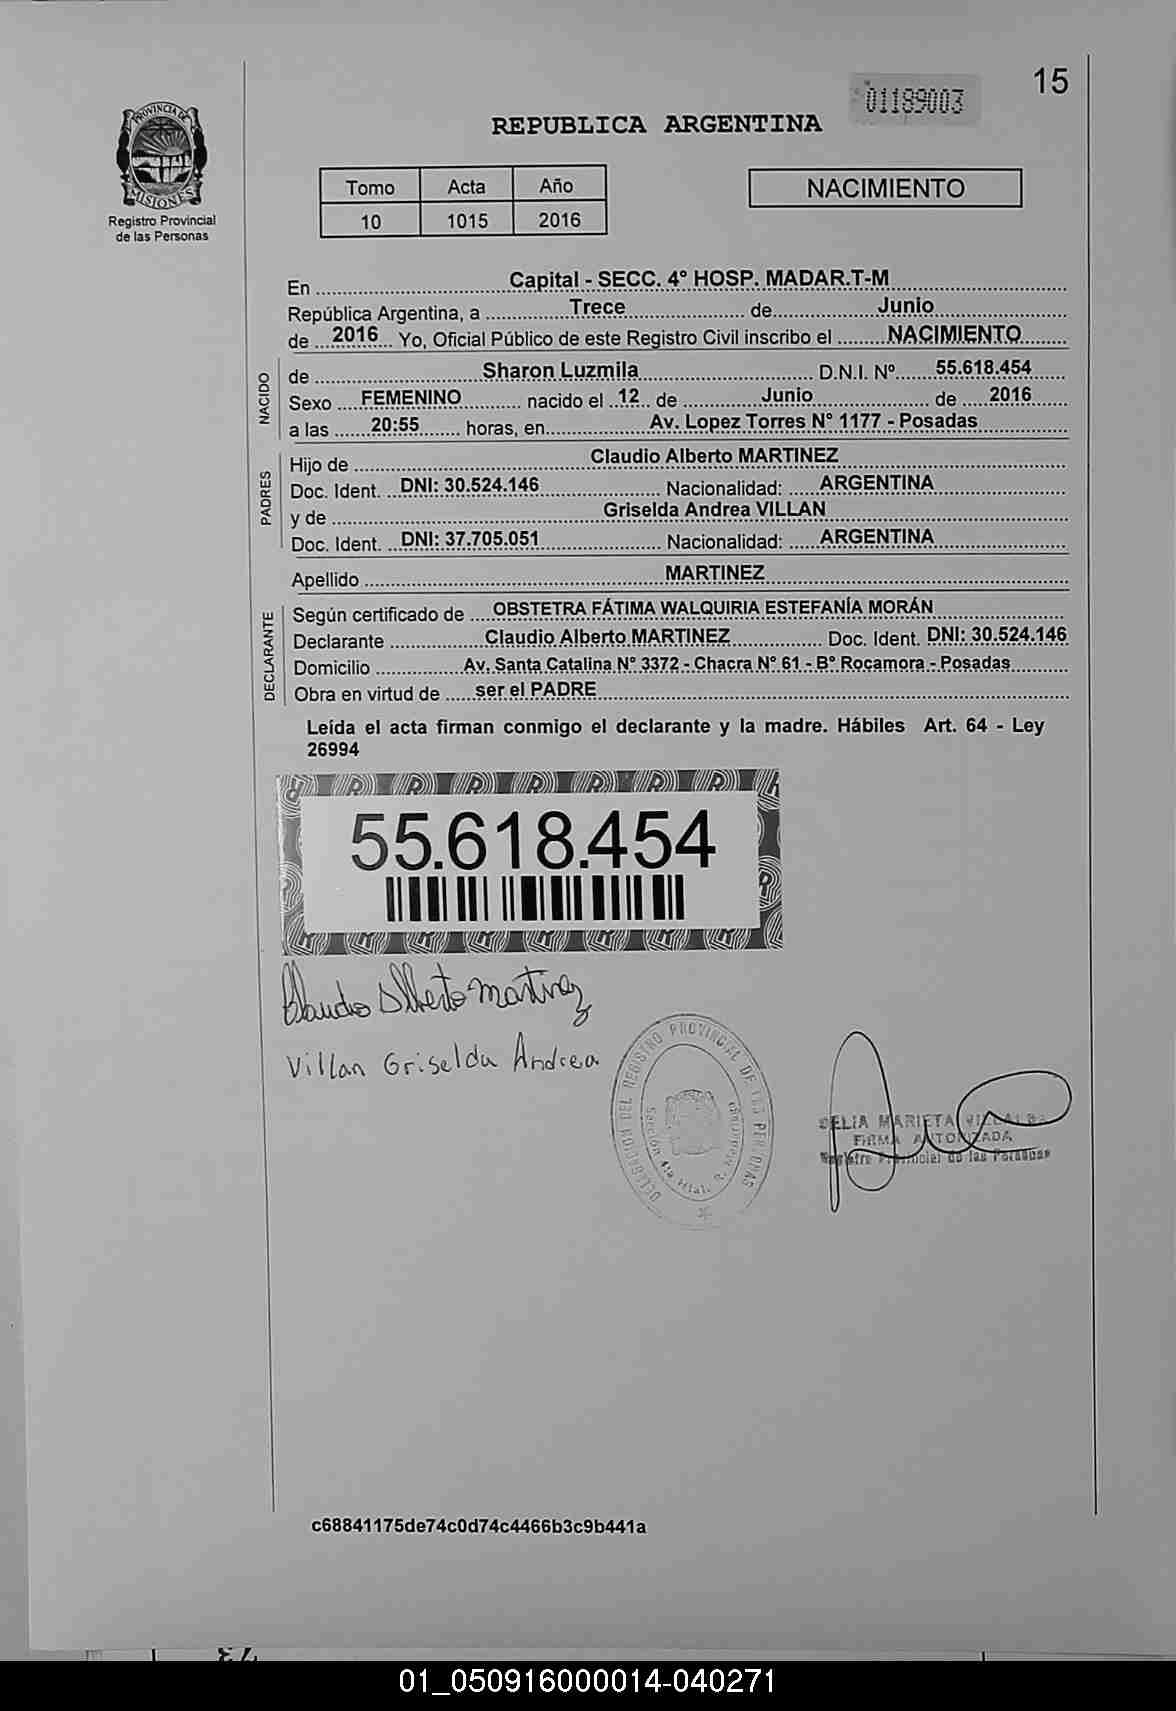 15
01189003
REPUBLICA ARGENTINA
PROVINCIA DE
MISIONES
Registro Provincial
de las Personas
Tomo Acta Año
10 1015 2016
NACIMIENTO
En Capital - SECC. 4° HOSP. MADAR.T-M
República Argentina, a Trece de Junio
de 2016 Yo, Oficial Público de este Registro Civil inscribo el NACIMIENTO
NACIDO
de Sharon Luzmila D.N.I. Nº 55.618.454
Sexo FEMENINO nacido el 12 de Junio de 2016
a las 20:55 horas, en Av. Lopez Torres N° 1177 - Posadas
PADRES
Hijo de Claudio Alberto MARTINEZ
Doc. Ident. DNI: 30.524.146 Nacionalidad: ARGENTINA
y de Griselda Andrea VILLAN
Doc. Ident. DNI: 37.705.051 Nacionalidad: ARGENTINA
Apellido MARTINEZ
DECLARANTE
Según certificado de OBSTETRA FÁTIMA WALQUIRIA ESTEFANÍA MORÁN
Declarante Claudio Alberto MARTINEZ Doc. Ident. DNI: 30.524.146
Domicilio Av. Santa Catalina N° 3372 - Chacra N° 61 - B° Rocamora - Posadas
Obra en virtud de ser el PADRE
Leída el acta firman conmigo el declarante y la madre. Hábiles Art. 64 - Ley
26994
55.618.454
Claudio Alberto Martinez
Villan Griselda Andrea
DELEGACION DEL REGISTRO PROVINCIAL DE LAS PERSONAS
Sección 4ta Htal. R.
DELIA MARIETA VILLALBA
FIRMA AUTORIZADA
Registro Provincial de las Personas
c68841175de74c0d74c4466b3c9b441a
01_050916000014-040271